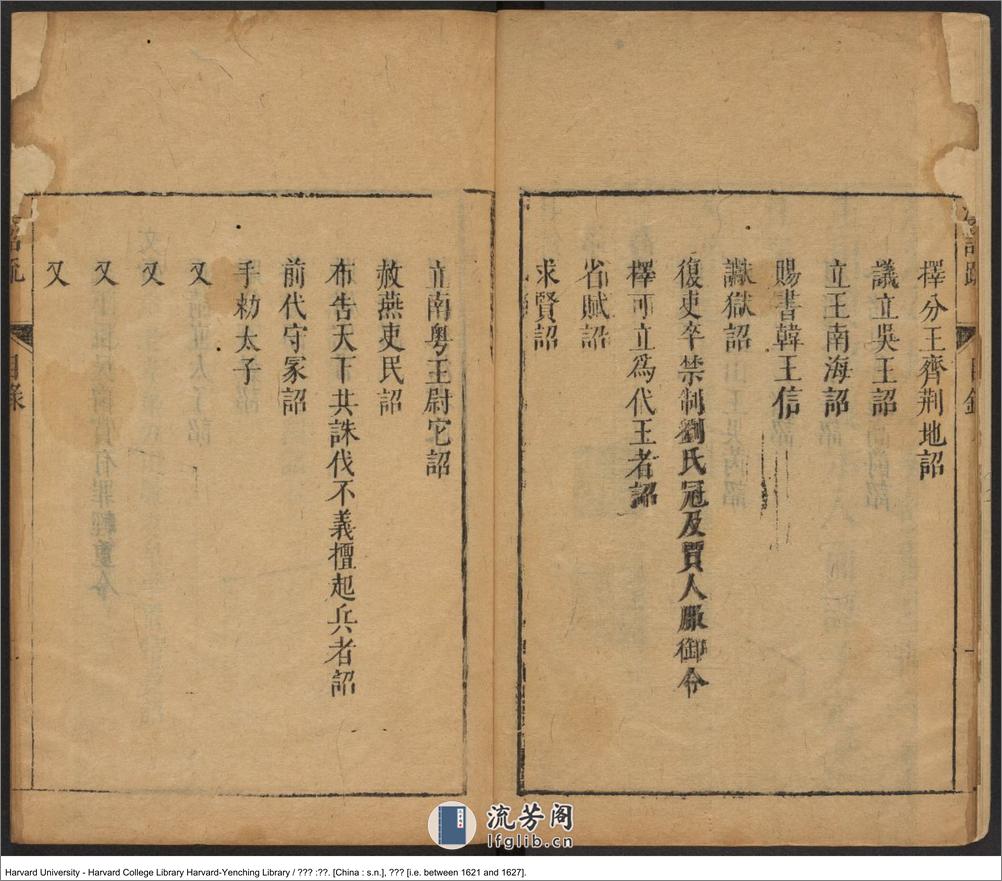 詔疏
目錄
擇分王齊荆地詔
議立吳王詔
立王南海詔
賜書韓王信
讞獄詔
復吏卒禁制劉氏冠及賈人服御令
擇可立爲代王者詔
省賦詔
求賢詔
立南粤王尉它詔
赦燕吏民詔
布告天下共誅伐不義擅起兵者詔
前代守冢詔
手勅太子
又
又
又
又
目錄
流芳阁
lfglib.cn
Harvard University - Harvard College Library Harvard-Yenching Library / ??? :??. [China : s.n.], ??? [i.e. between 1621 and 1627].